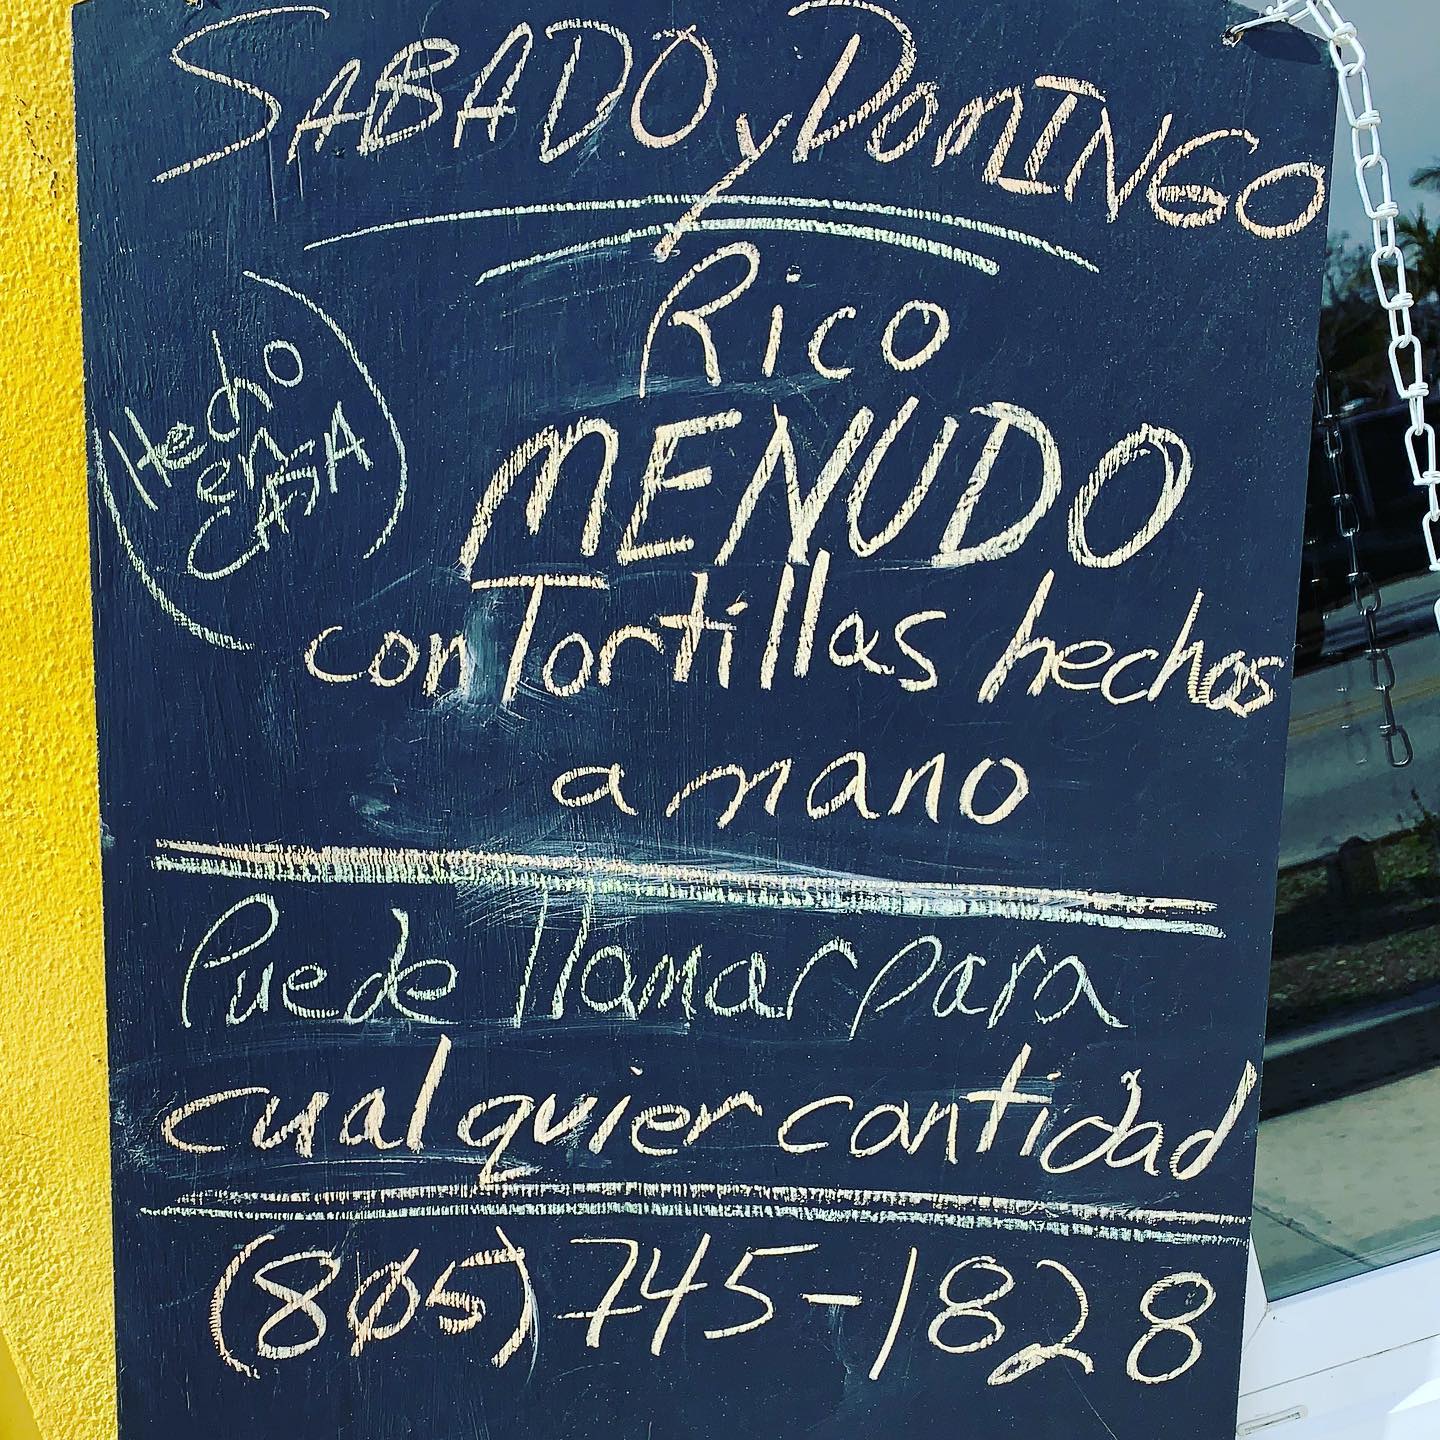 SABADO y DOMINGO
Rico
MENUDO
Hecho
en
CASA
con Tortillas hechas
a mano
Puede llamar para
cualquier cantidad
(805) 745-1828